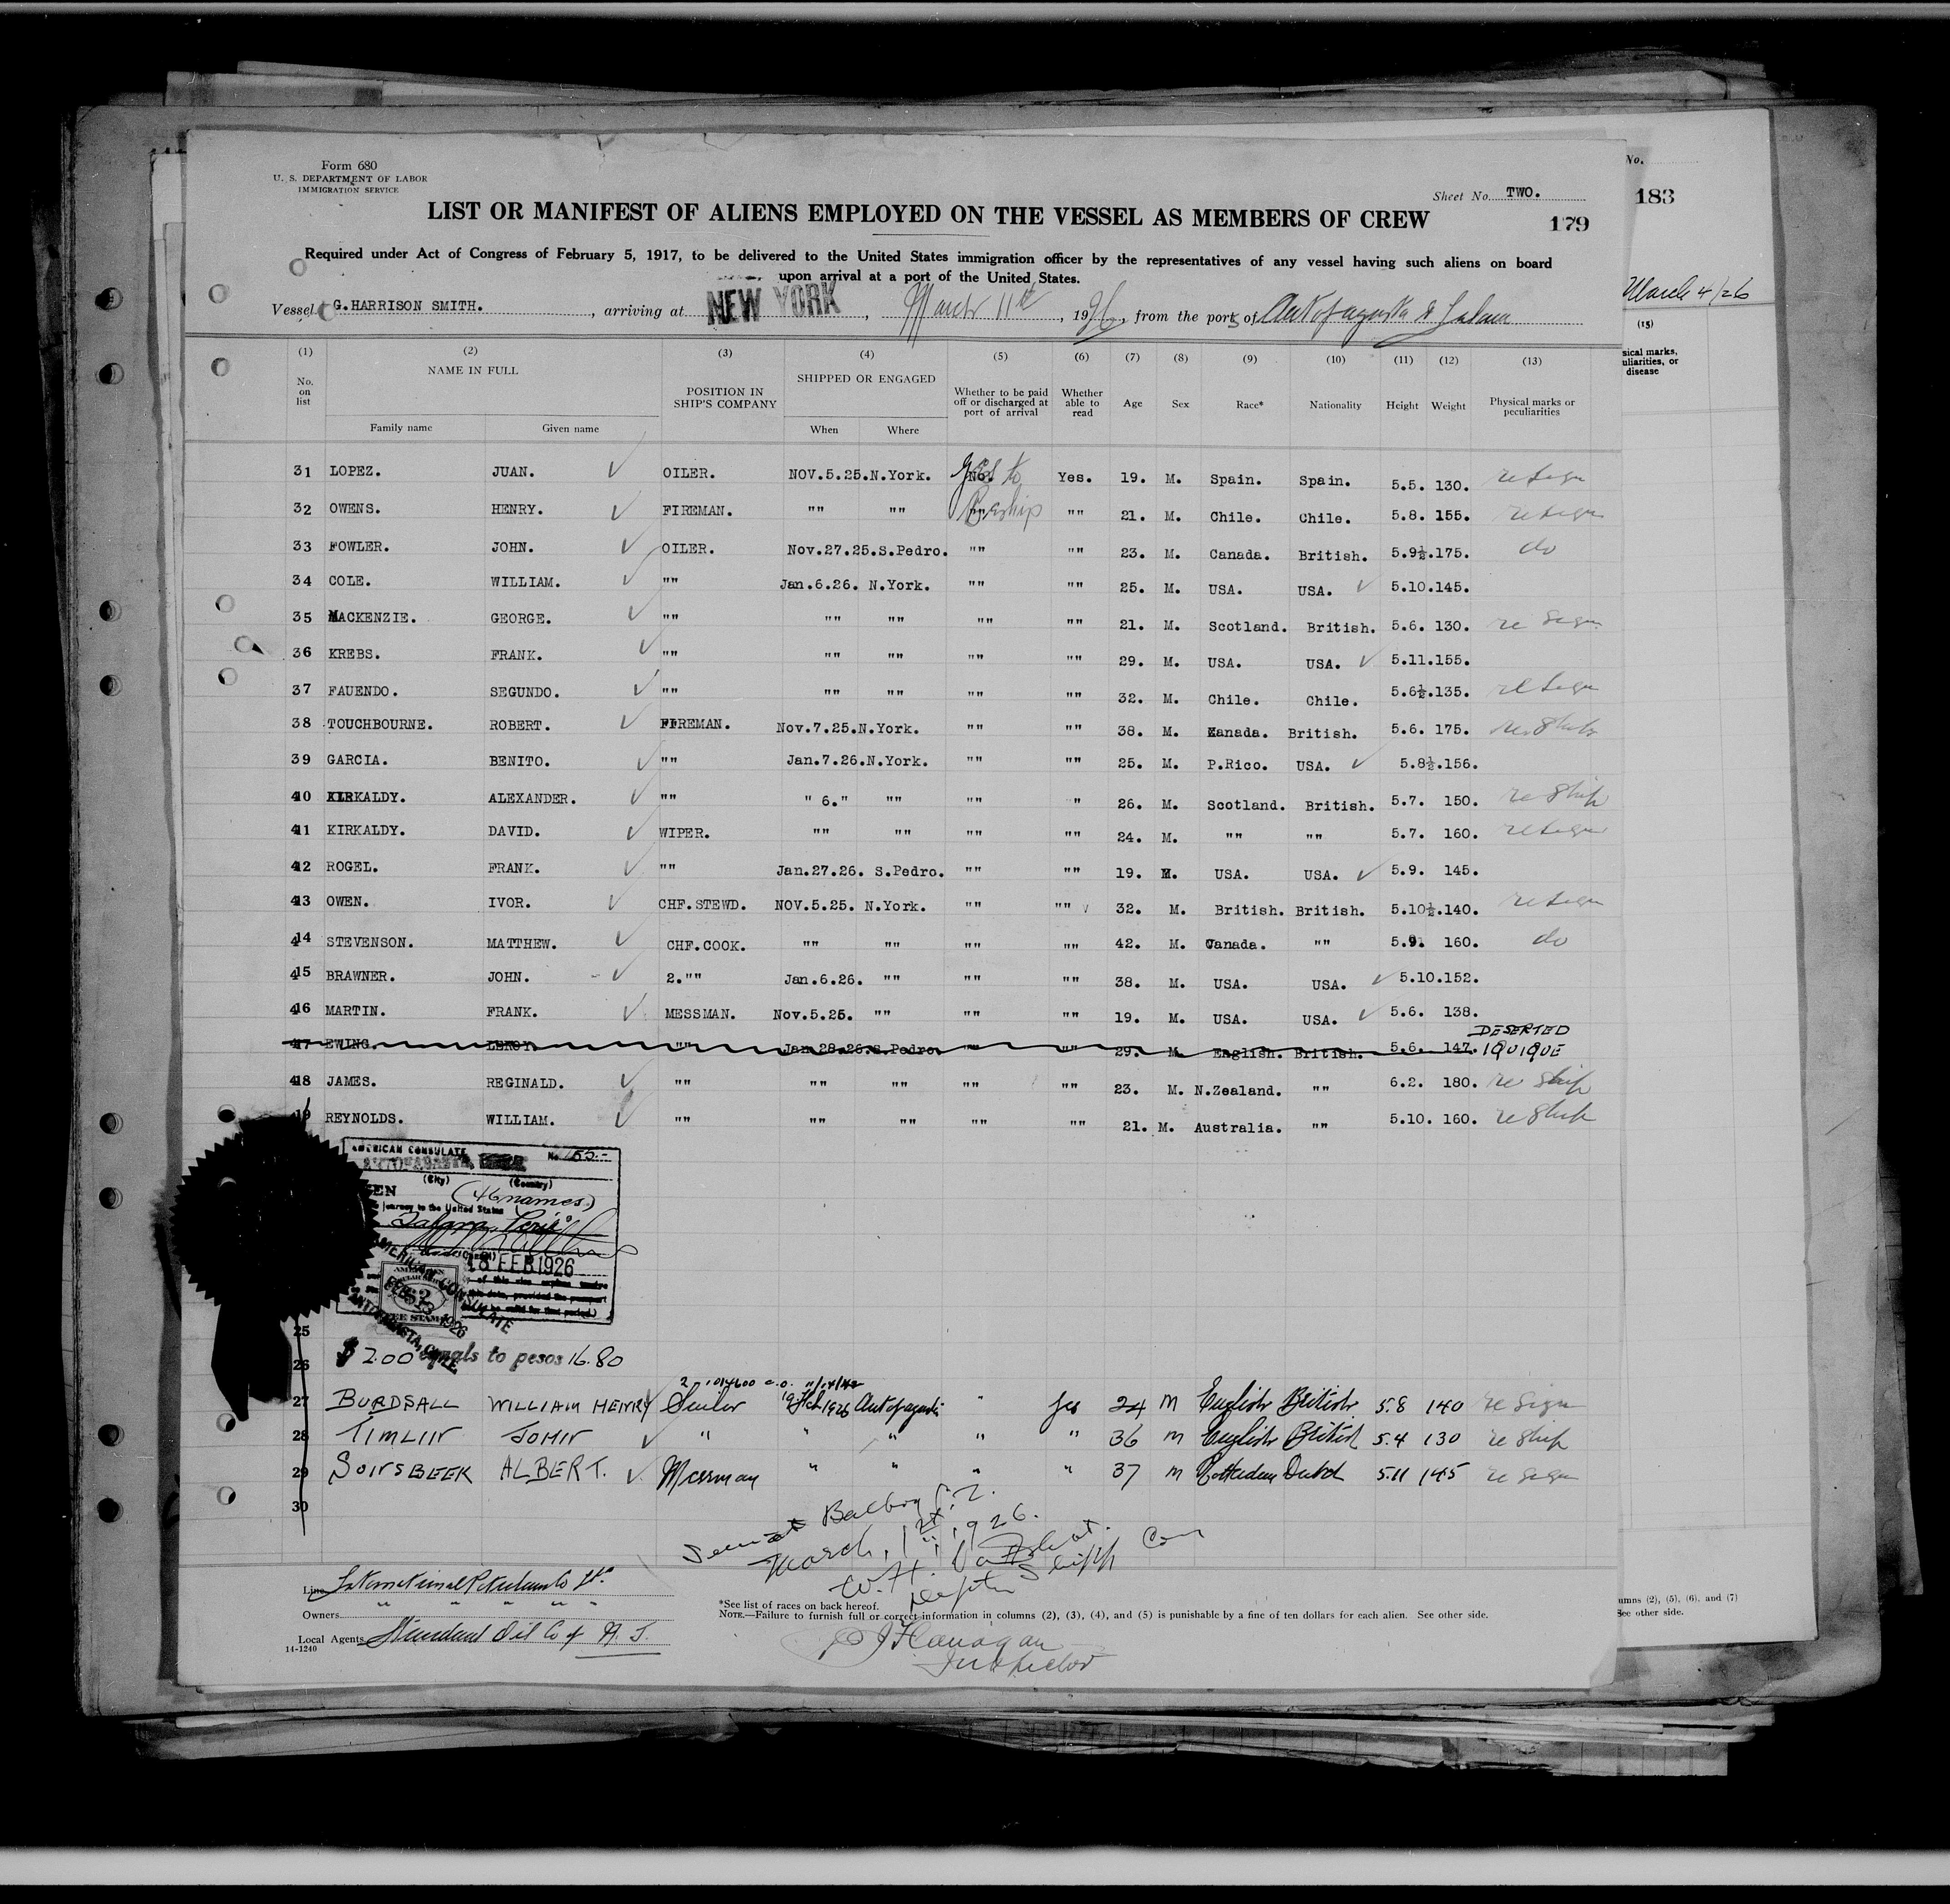 Form 680
U. S. DEPARTMENT OF LABOR
IMMIGRATION SERVICE
Sheet No. TWO.
LIST OR MANIFEST OF ALIENS EMPLOYED ON THE VESSEL AS MEMBERS OF CREW
179
Required under Act of Congress of February 5, 1917, to be delivered to the United States immigration officer by the representatives of any vessel having such aliens on board
upon arrival at a port of the United States.
Vessel G.HARRISON SMITH. , arriving at NEW YORK , March 11th , 1926, from the ports of Antofagasta & Talara
(1) (2) (3) (4) (5) (6) (7) (8) (9) (10) (11) (12) (13)
No. on list NAME IN FULL Family name Given name POSITION IN SHIP'S COMPANY SHIPPED OR ENGAGED When Where Whether to be paid off or discharged at port of arrival Whether able to read Age Sex Race* Nationality Height Weight Physical marks or peculiarities
31 LOPEZ. JUAN. OILER. NOV.5.25.N.York. No. Yes to Yes. 19. M. Spain. Spain. 5.5. 130. resign
32 OWENS. HENRY. FIREMAN. "" "" "" Reship "" 21. M. Chile. Chile. 5.8. 155. resign
33 FOWLER. JOHN. OILER. Nov.27.25.S.Pedro. "" "" 23. M. Canada. British. 5.9½.175. do
34 COLE. WILLIAM. "" Jan.6.26. N.York. "" "" 25. M. USA. USA. 5.10.145.
35 MACKENZIE. GEORGE. "" "" "" "" "" 21. M. Scotland. British. 5.6. 130. re sign
36 KREBS. FRANK. "" "" "" "" "" 29. M. USA. USA. 5.11.155.
37 FAUENDO. SEGUNDO. "" "" "" "" "" 32. M. Chile. Chile. 5.6½.135. resign
38 TOUCHBOURNE. ROBERT. FIREMAN. Nov.7.25.N.York. "" "" 38. M. Canada. British. 5.6. 175. re Ship
39 GARCIA. BENITO. "" Jan.7.26.N.York. "" "" 25. M. P.Rico. USA. 5.8½.156.
40 KIRKALDY. ALEXANDER. "" " 6." "" "" " 26. M. Scotland. British. 5.7. 150. re Ship
41 KIRKALDY. DAVID. WIPER. "" "" "" "" 24. M. "" "" 5.7. 160. resign
42 ROGEL. FRANK. "" Jan.27.26. S.Pedro. "" "" 19. M. USA. USA. 5.9. 145.
43 OWEN. IVOR. CHF.STEWD. NOV.5.25. N.York. "" "" 32. M. British. British. 5.10½.140. resign
44 STEVENSON. MATTHEW. CHF.COOK. "" "" "" "" 42. M. Canada. "" 5.9. 160. do
45 BRAWNER. JOHN. 2."" Jan.6.26. "" "" "" 38. M. USA. USA. 5.10.152.
46 MARTIN. FRANK. MESSMAN. Nov.5.25. "" "" "" 19. M. USA. USA. 5.6. 138.
47 EWING. LEROY. "" Jan.28.26.S.Pedro. "" "" 29. M. English. British. 5.6. 147. DESERTED IQUIQUE
48 JAMES. REGINALD. "" "" "" "" "" 23. M. N.Zealand. "" 6.2. 180. re ship
49 REYNOLDS. WILLIAM. "" "" "" "" 21. M. Australia. "" 5.10. 160. re Ship
AMERICAN CONSULATE
ANTOFAGASTA, No. 155.-
(City) (Country)
SEEN (46 names.)
journey to the United States
Talara, Perú
18 FEB 1926
AMERICAN CONSULATE
FEB 18 1926
ANTOFAGASTA, CHILE
FEE STAMP
25
26 $2.00 equals to pesos 16.80
27 BURDSALL WILLIAM HENRY Sailor Feb 1926 Antofagasta " Yes 24 M English British 5.8 140 re Sign
28 TIMLIN JOHN " " " " " 36 M English British 5.4 130 re Ship
29 SONSBEEK ALBERT. Messman " " " " 37 M Rotterdam Dutch 5.11 145 re sign
30
Seen at Balboa C.Z.
March, 1st, 1926.
W.H.
Deputy Shipp Com
Line International Petroleum Co Ltd.
Owners " " " " "
Local Agents Standard Oil Co of N. J.
14-1240
*See list of races on back hereof.
NOTE.—Failure to furnish full or correct information in columns (2), (3), (4), and (5) is punishable by a fine of ten dollars for each alien. See other side.
J Flanagan
Inspector
No.
183
March 4/26
(15)
sical marks,
uliarities, or
disease
umns (2), (5), (6), and (7)
See other side.